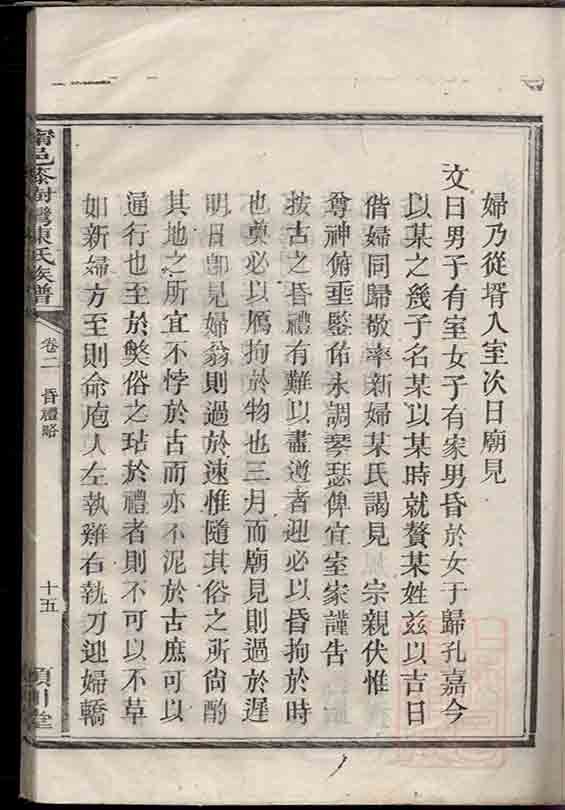 婦乃從壻入室次日廟見
文曰男子有室女子有家男昏於女于歸孔嘉今
以某之幾子名某以某時就贅某姓兹以吉日
偕婦同歸敬率新婦某氏謁見　宗親伏惟
尊神俯垂鑒佑永調琴瑟俾宜室家謹告
按古之昏禮有難以盡遵者迎必以昏拘於時
也奠必以鴈拘於物也三月而廟見則過於遲
明日卽見婦翁則過於速惟隨其俗之所尙酌
其地之所宜不悖於古而亦不泥於古庶可以
通行也至於獘俗之玷於禮者則不可以不草
如新婦方至則命庖人左執雞右執刀迎婦轎
甯邑
陳氏族譜
卷二　昏禮略
十五
潁川堂